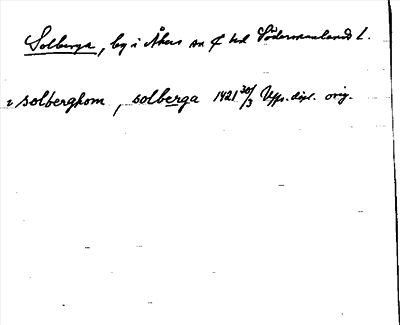 Solberga, by i Åkers sn o hd Södermanlands l.
i solberghom, solberga 1421 30/3 Upps. dipl. orig.